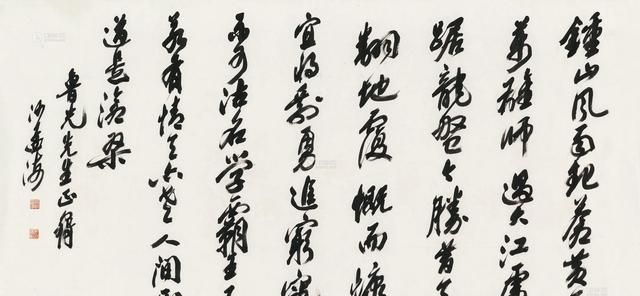 鍾山風雨起蒼黄
萬雄師過大江虎
踞龍盤今勝昔天
翻地覆慨而慷
宜將剩勇追窮寇
不可沽名學霸王
若有情天亦老人間
道是滄桑
先生正
沙孟海